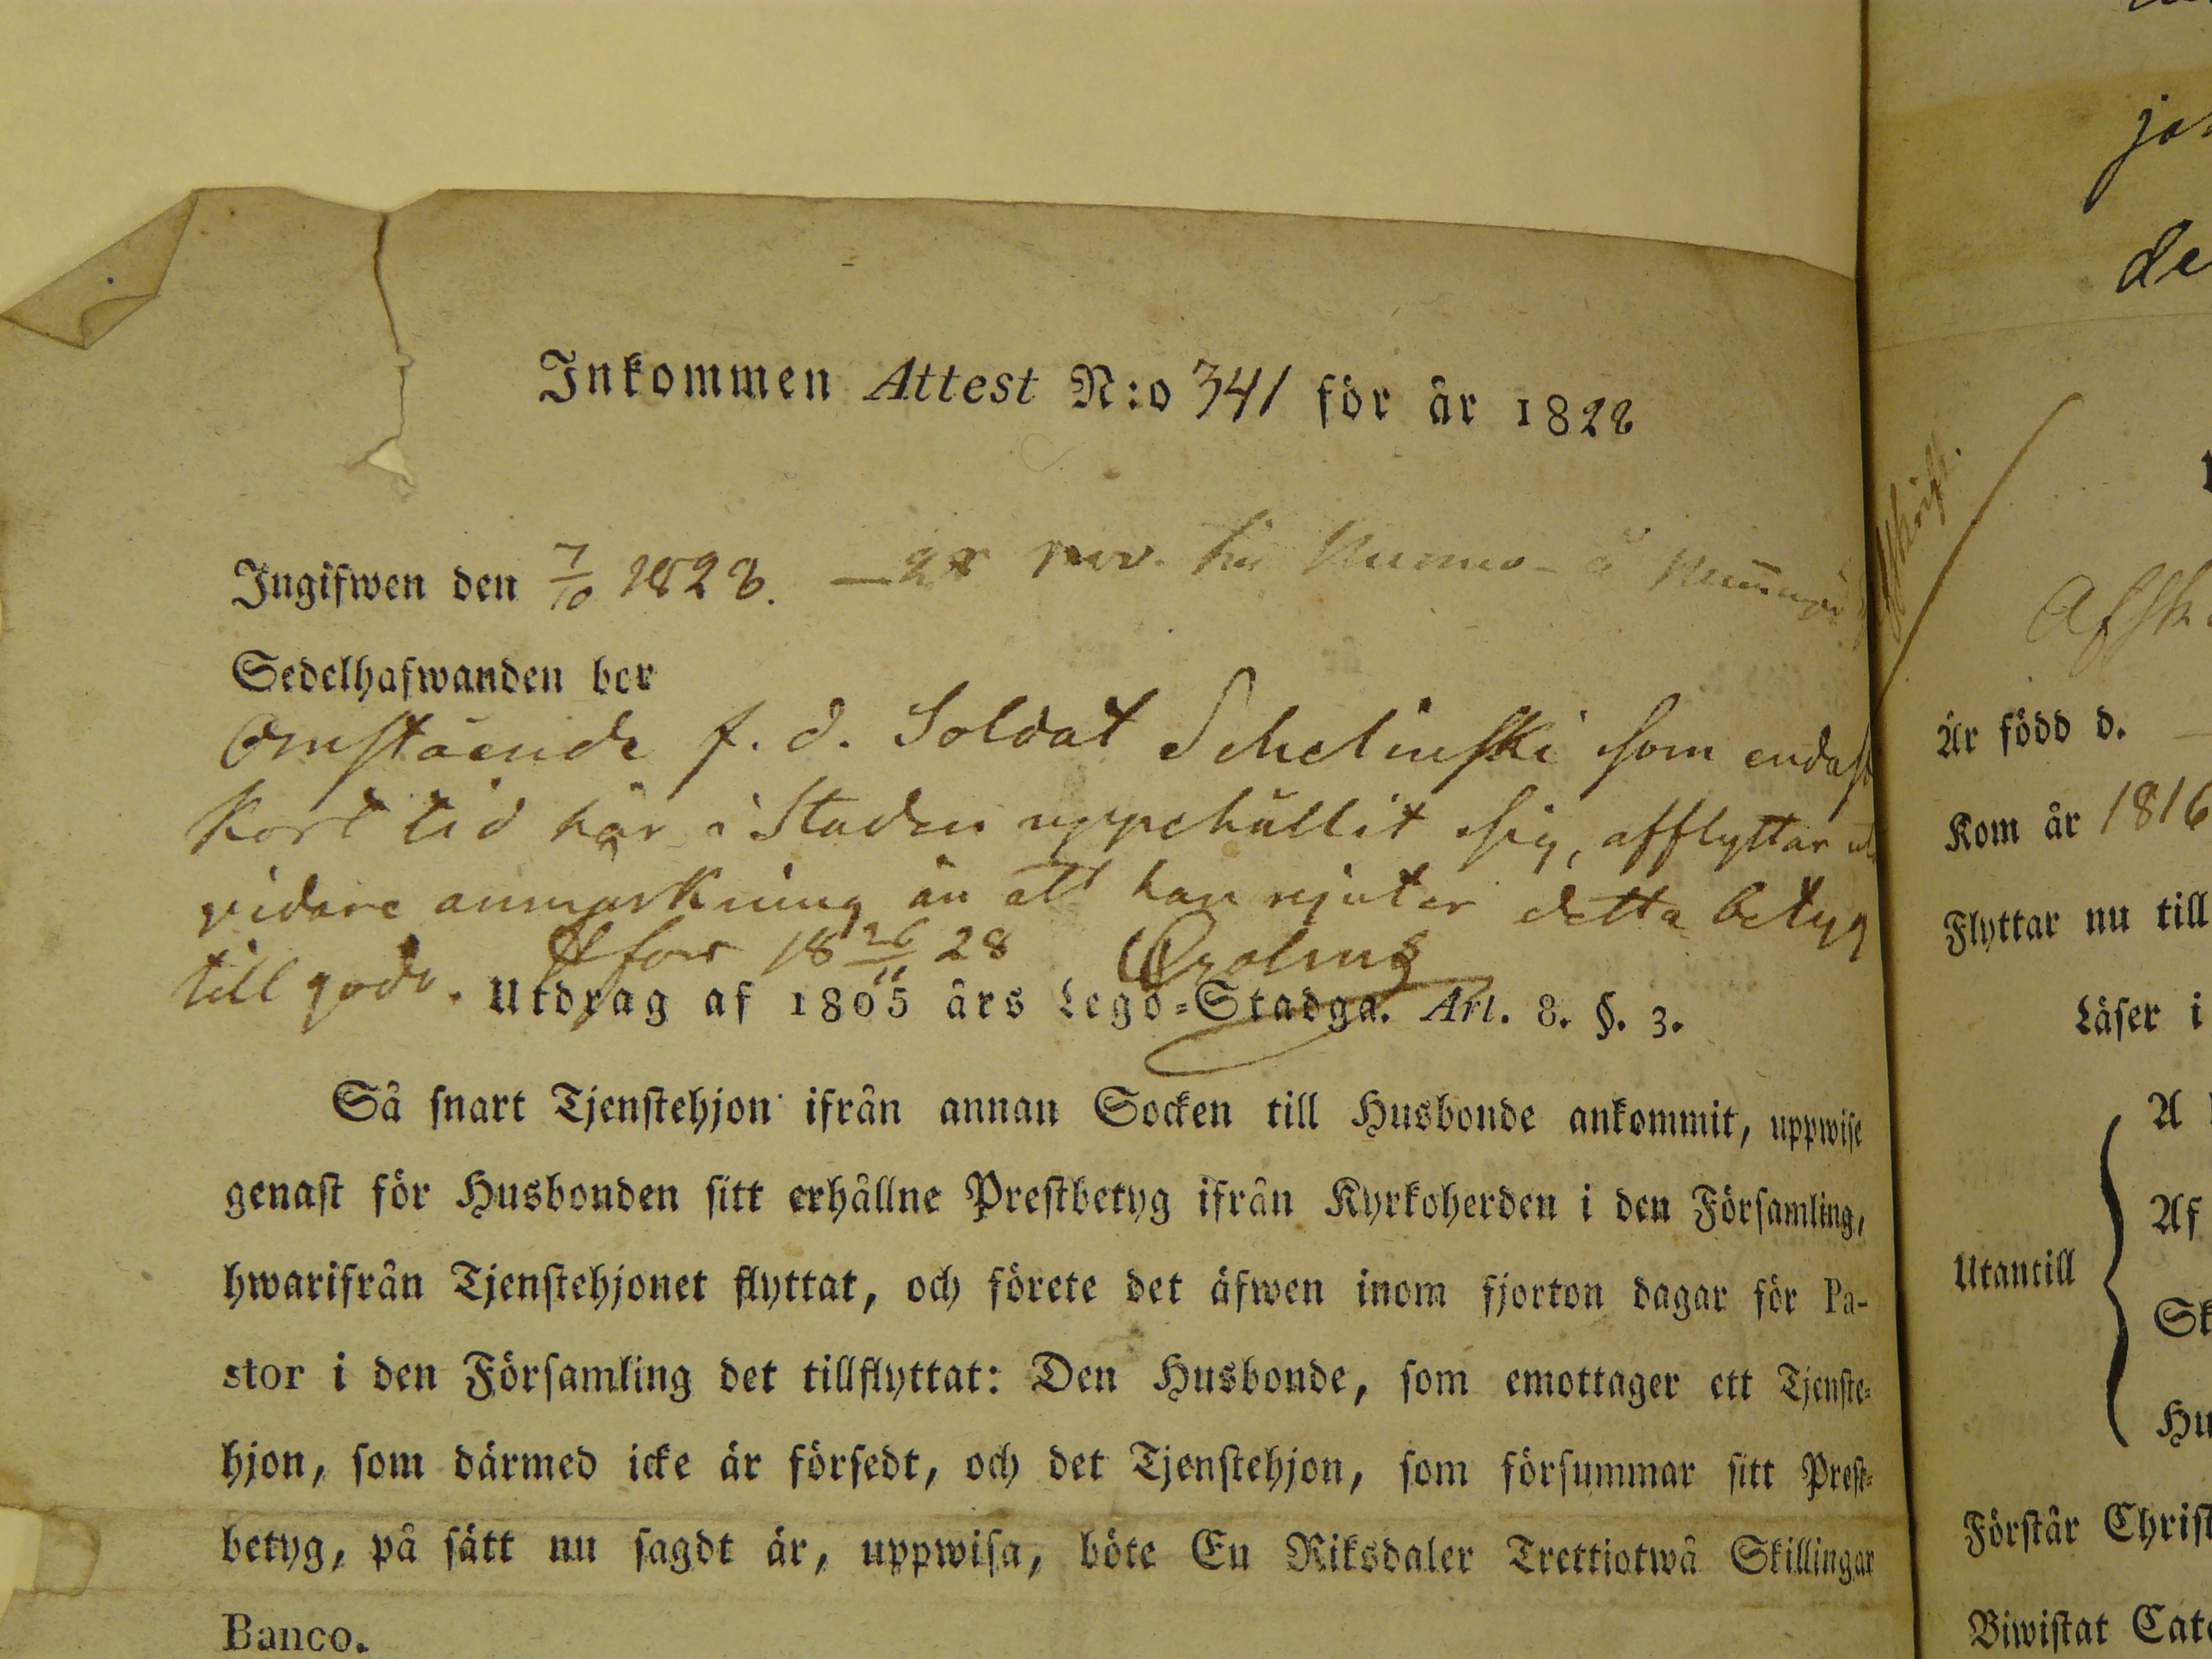 Inkommen Attest N:o 341 för år 1828
Ingifwen den 7/10 1828.
Sedelhafwanden bor
Omstående f. d. Soldat Schelinski som endast
kort tid här i Staden uppehållit sig, afflyttar
vidare anmärkning än att han njuter detta betyg
till godo. 18 26/11 28
Utdrag af 1805 års Lego-Stadga. Art. 8. §. 3.
Så snart Tjenstehjon ifrån annan Socken till Husbonde ankommit, uppwise
genast för Husbonden sitt erhållne Prestbetyg ifrån Kyrkoherden i den Församling,
hwarifrån Tjenstehjonet flyttat, och förete det äfwen inom fjorton dagar för Pa-
stor i den Församling det tillflyttat: Den Husbonde, som emottager ett Tjenste-
hjon, som därmed icke är försedt, och det Tjenstehjon, som försummar sitt Prest-
betyg, på sätt nu sagdt är, uppwisa, böte En Riksdaler Trettiotwå Skillingar
Banco.
de
Är född d.
Kom år 1816
Flyttar nu till
Läser i
A
Af
Utantill
Sk
Hu
Förstår Christ
Biwistat Cate